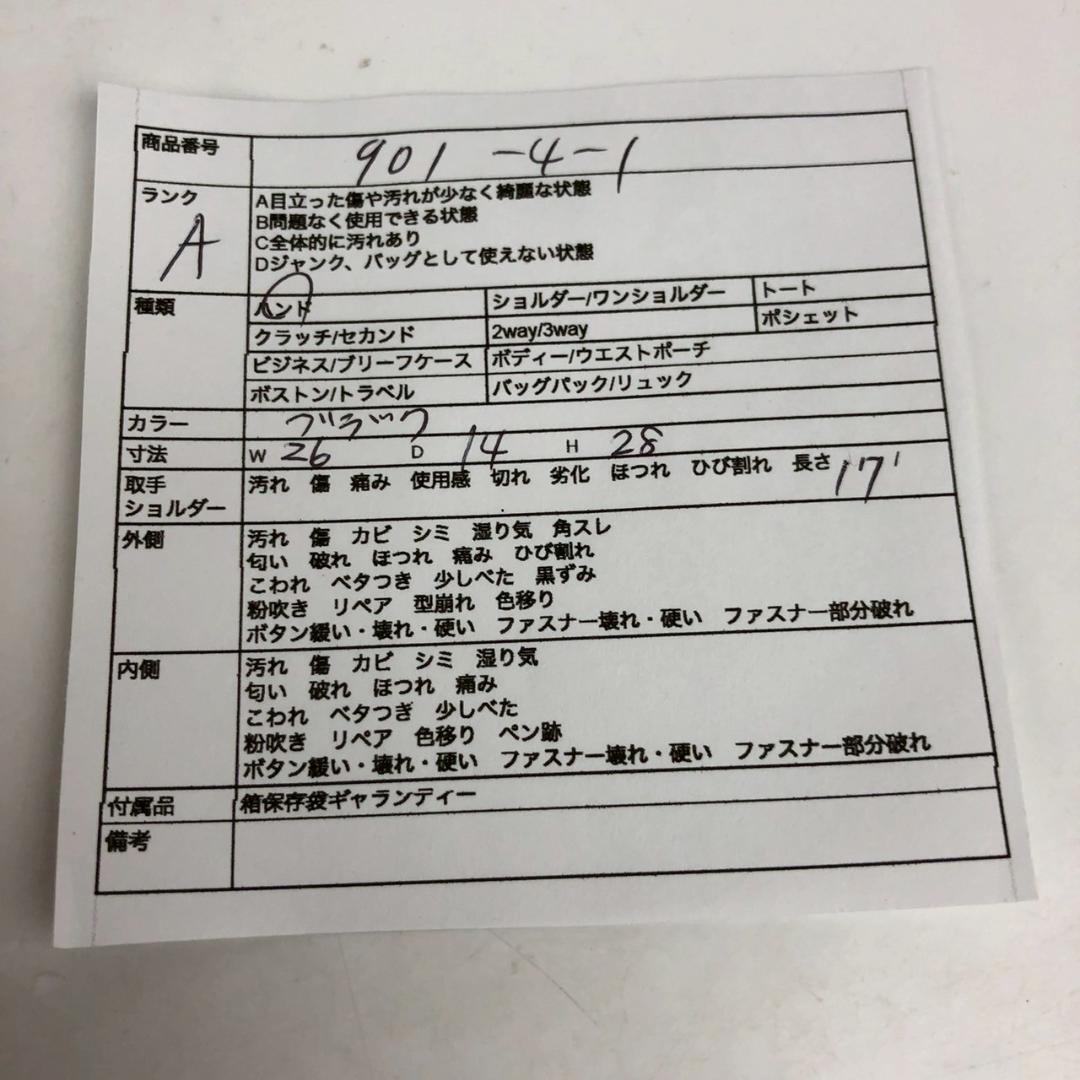 商品番号 901-4-1
ランク A
A目立った傷や汚れが少なく綺麗な状態
B問題なく使用できる状態
C全体的に汚れあり
Dジャンク、バッグとして使えない状態
種類 ハンド ショルダー/ワンショルダー トート
クラッチ/セカンド 2way/3way ポシェット
ビジネス/ブリーフケース ボディー/ウエストポーチ
ボストン/トラベル バッグパック/リュック
カラー ブラック
寸法 W 26 D 14 H 28
取手 汚れ 傷 痛み 使用感 切れ 劣化 ほつれ ひび割れ 長さ 17
ショルダー
外側 汚れ 傷 カビ シミ 湿り気 角スレ
匂い 破れ ほつれ 痛み ひび割れ
こわれ ベタつき 少しべた 黒ずみ
粉吹き リペア 型崩れ 色移り
ボタン緩い・壊れ・硬い ファスナー壊れ・硬い ファスナー部分破れ
内側 汚れ 傷 カビ シミ 湿り気
匂い 破れ ほつれ 痛み
こわれ ベタつぎ 少しべた
粉吹き リペア 色移り ペン跡
ボタン緩い・壊れ・硬い ファスナー壊れ・硬い ファスナー部分破れ
付属品 箱保存袋ギャランディー
備考